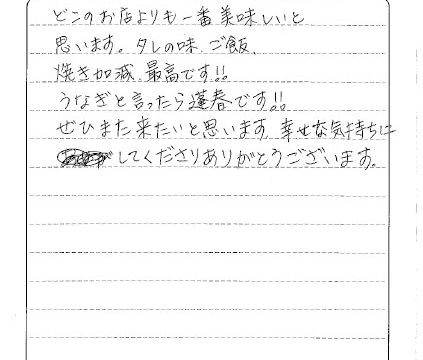 どこのお店よりも一番美味しいと
思います。タレの味、ご飯、
焼き加減、最高です!!
うなぎと言ったら蓬春です!!
ぜひまた来たいと思います。幸せな気持ちに
してくださりありがとうございます。